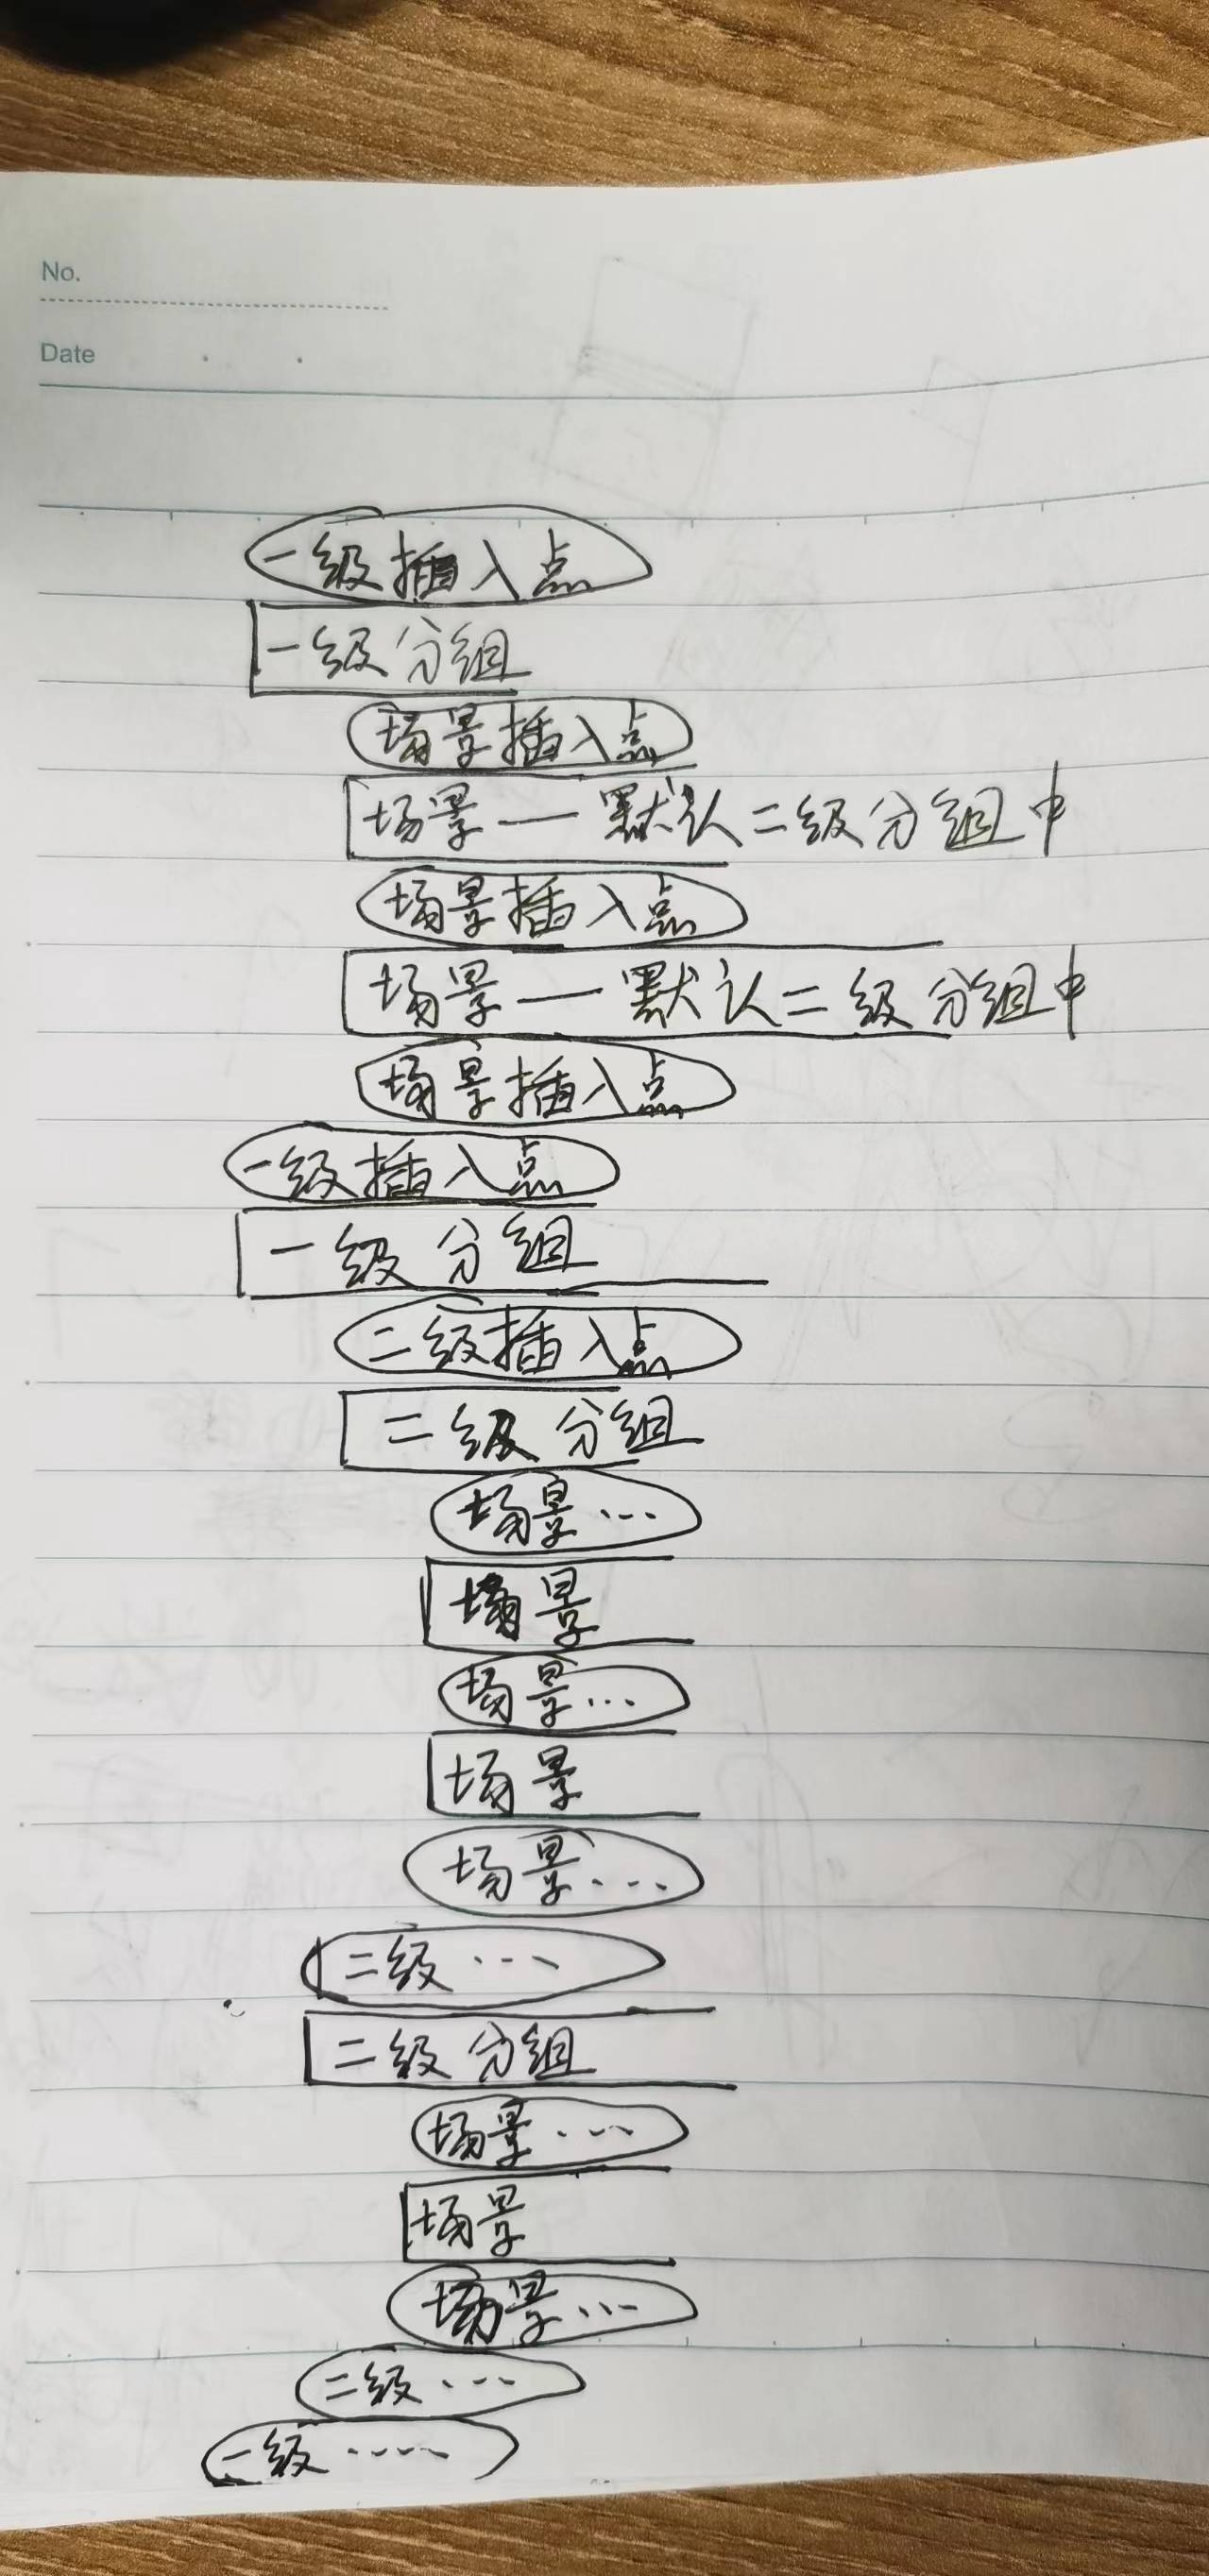 No.
Date
一级插入点
一级分组
场景插入点
场景一默认二级分组中
场景插入点
场景一默认二级分组中
场景插入点
一级插入点
一级分组
二级插入点
二级分组
场景...
场景
场景...
场景
场景...
二级...
二级分组
场景...
场景
场景...
二级...
一级....